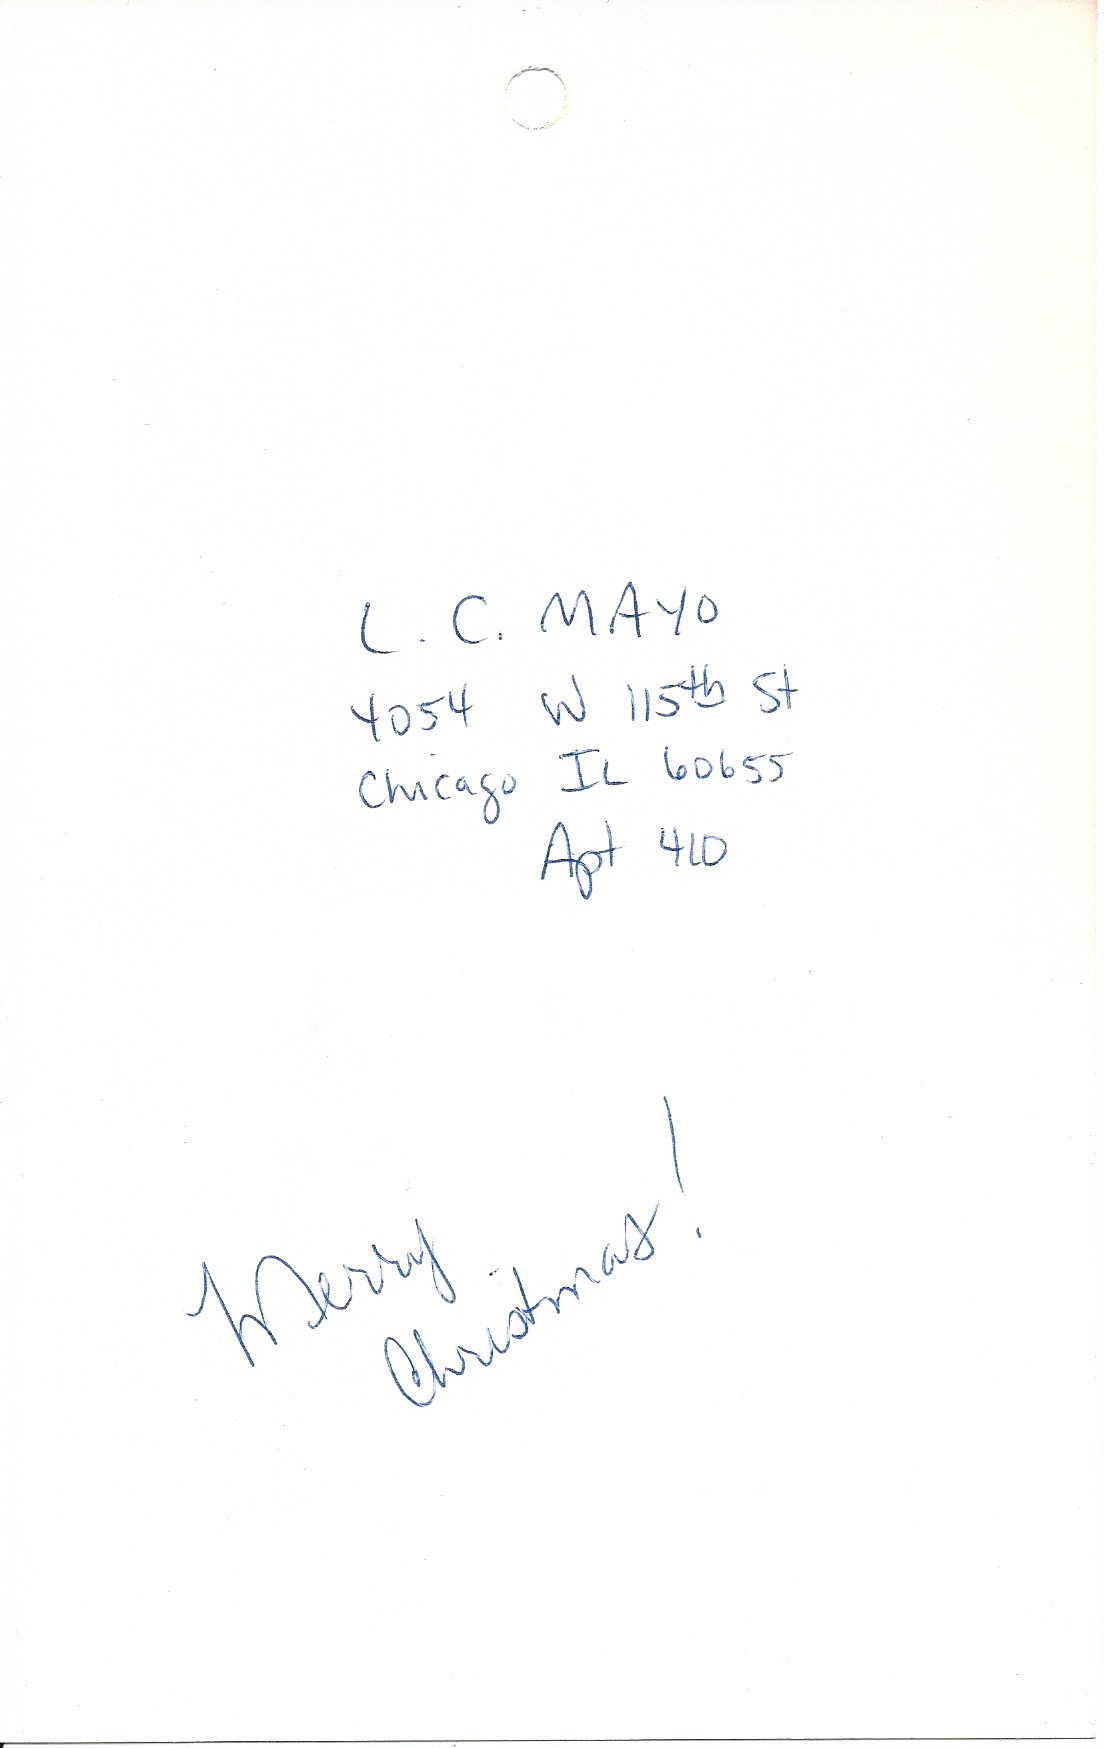 L. C. MAYO
4054 W 115th St
Chicago IL 60655
Apt 410
Merry
Christmas!